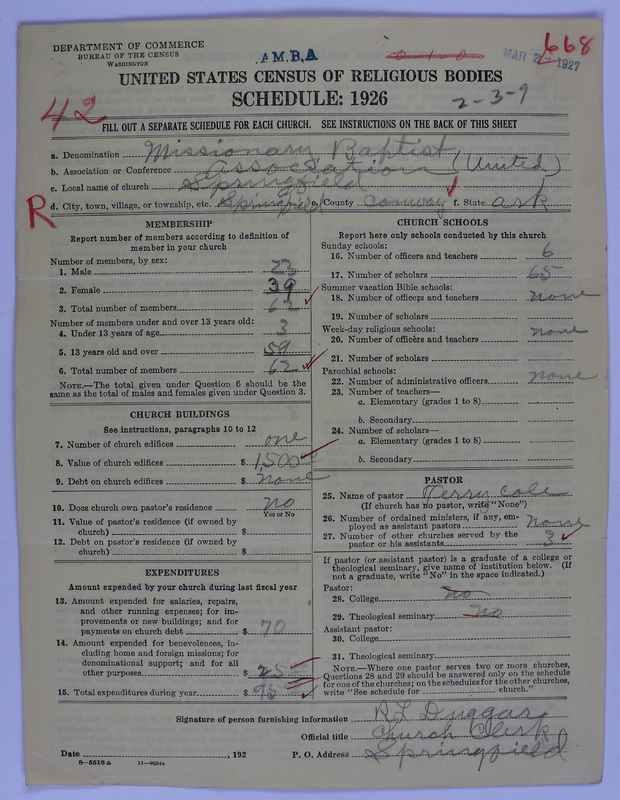 DEPARTMENT OF COMMERCE
BUREAU OF THE CENSUS
WASHINGTON
A.M.B.A
0 1 0
MAR 2 - 1927
668
UNITED STATES CENSUS OF RELIGIOUS BODIES
SCHEDULE: 1926
2-3-9
42
FILL OUT A SEPARATE SCHEDULE FOR EACH CHURCH. SEE INSTRUCTIONS ON THE BACK OF THIS SHEET
a. Denomination Missionary Baptist
b. Association or Conference Association (United)
c. Local name of church Springfield
d. City, town, village, or township, etc. Springfield e. County Conway f. State Ark
R
MEMBERSHIP
Report number of members according to definition of
member in your church
Number of members, by sex:
1. Male 23
2. Female 39
3. Total number of members 62
Number of members under and over 13 years old:
4. Under 13 years of age 3
5. 13 years old and over 59
6. Total number of members 62
NOTE.—The total given under Question 6 should be the
same as the total of males and females given under Question 3.
CHURCH BUILDINGS
See instructions, paragraphs 10 to 12
7. Number of church edifices one
8. Value of church edifices $ 1,500
9. Debt on church edifices $ none
10. Does church own pastor's residence no
Yes or No
11. Value of pastor's residence (if owned by
church) $
12. Debt on pastor's residence (if owned by
church) $
EXPENDITURES
Amount expended by your church during last fiscal year
13. Amount expended for salaries, repairs,
and other running expenses; for im-
provements or new buildings; and for
payments on church debt $ 70
14. Amount expended for benevolences, in-
cluding home and foreign missions; for
denominational support; and for all
other purposes $ 25
15. Total expenditures during year $ 95
CHURCH SCHOOLS
Report here only schools conducted by this church
Sunday schools:
16. Number of officers and teachers 6
17. Number of scholars 65
Summer vacation Bible schools:
18. Number of officers and teachers none
19. Number of scholars
Week-day religious schools:
20. Number of officers and teachers none
21. Number of scholars
Parochial schools:
22. Number of administrative officers none
23. Number of teachers—
a. Elementary (grades 1 to 8)
b. Secondary
24. Number of scholars—
a. Elementary (grades 1 to 8)
b. Secondary
PASTOR
25. Name of pastor Terry Cole
(If church has no pastor, write "None")
26. Number of ordained ministers, if any, em-
ployed as assistant pastors none
27. Number of other churches served by the
pastor or his assistants 3
If pastor (or assistant pastor) is a graduate of a college or
theological seminary, give name of institution below. (If
not a graduate, write "No" in the space indicated.)
Pastor:
28. College no
29. Theological seminary no
Assistant pastor:
30. College
31. Theological seminary
NOTE.—Where one pastor serves two or more churches,
Questions 28 and 29 should be answered only on the schedule
for one of the churches; on the schedules for the other churches,
write "See schedule for church."
Signature of person furnishing information R L Duggar
Official title Church Clerk
Date , 192 P. O. Address Springfield
8—5518 a 11—9024a